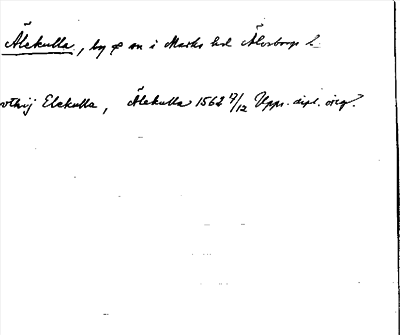 Älekulla, by o sn i Marks hd Älvsborgs L
vthij Elekulla, Älekulla 1562 7/12 Upps. dipl. orig.